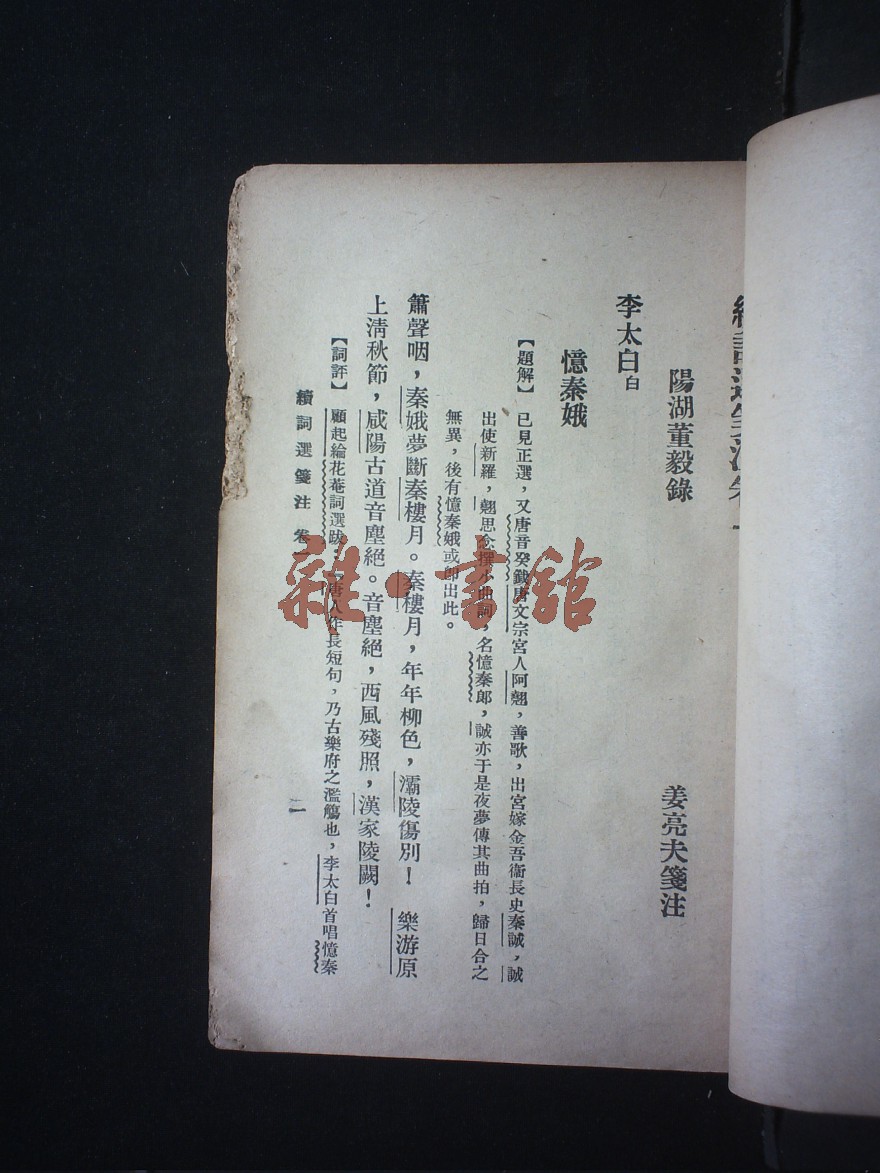 續詞選箋注卷一
陽湖董毅錄
姜亮夫箋注
李太白白
憶秦娥
【題解】 已見正選，又唐音癸籤唐文宗宮人阿翹，善歌，出宮嫁金吾衞長史秦誠，誠
出使新羅，翹思念撰小曲詞，名憶秦郎，誠亦于是夜夢傳其曲拍，歸日合之
無異，後有憶秦娥或卽出此。
簫聲咽，秦娥夢斷秦樓月。秦樓月，年年柳色，灞陵傷別！ 樂游原
上淸秋節，咸陽古道音塵絕。音塵絕，西風殘照，漢家陵闕！
【詞評】 顧起綸花菴詞選跋：唐人作長短句，乃古樂府之濫觴也，李太白首唱憶秦
續詞選箋注 卷一
一
雜·書館